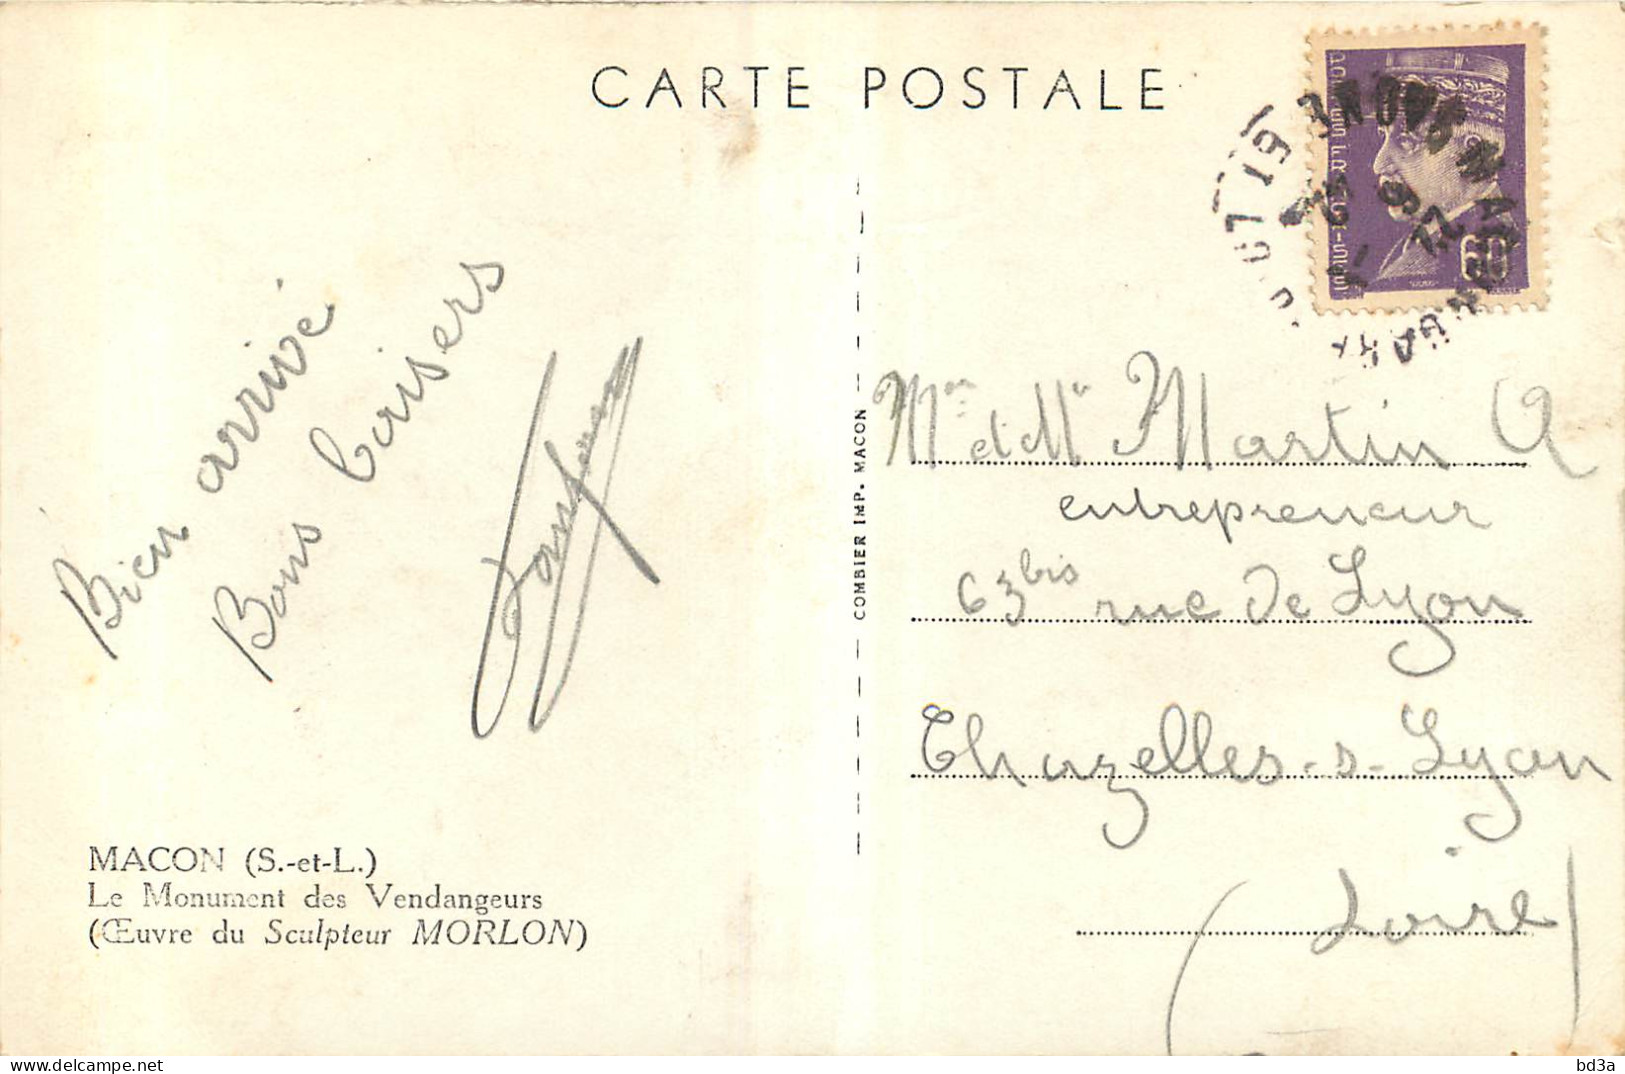 CARTE POSTALE
Bien arrivé
Bons baisers
MACON (S.-et-L.)
Le Monument des Vendangeurs
(Œuvre du Sculpteur MORLON)
COMBIER IMP. MACON
60
Mr et Mme Martin A
entrepreneur
63 bis rue de Lyon
Chazelles-s-Lyon
(Loire)
delcampe.net
bd3a